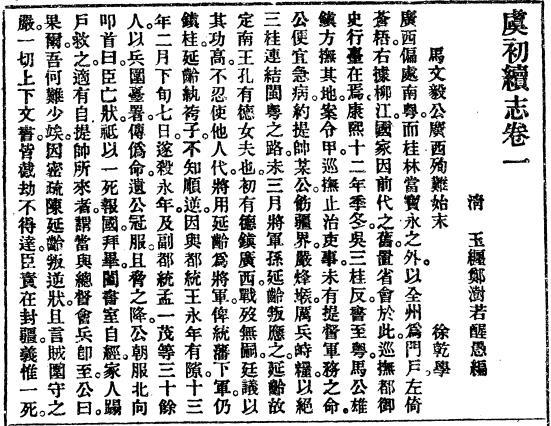 虞初續志卷一
清 玉經鄭澍若醒愚編
馬文毅公廣西殉難始末 徐乾學
廣西偏處南粤而桂林當寶永之外以全州爲門戸左倚
蒼梧右據柳江國家因前代之舊置省會於此巡撫都御
史行臺在焉康熙十二年季冬吳三桂反書至粤馬公雄
鎮方撫其地案令甲巡撫止治吏事未有提督軍務之命
公便宜急病約提帥某公飭疆界嚴烽堠厲兵峙糧以絕
三桂連結閩粤之路未三月將軍孫延齡叛應之延齡故
定南王孔有德女夫也初有德鎮廣西戰歿無嗣廷議以
其功高不忍使他人代將用延齡爲將軍俾統藩下軍仍
鎮桂延齡紈袴子不知順逆因與都統王永年有隙十三
年二月下旬七日遂殺永年及副都統孟一茂等三十餘
人以兵圍臺署傳僞命遺公冠服且脅之降公朝服北向
叩首曰臣亡狀祇以一死報國拜畢闔書室自經家人蹋
戸救之適有自提帥所來者謂當與總督會兵卽至公曰
果爾吾何難少竢因密疏陳延齡叛逆狀且言賊圍守之
嚴一切上下文書皆截劫不得達臣責在封疆義惟一死